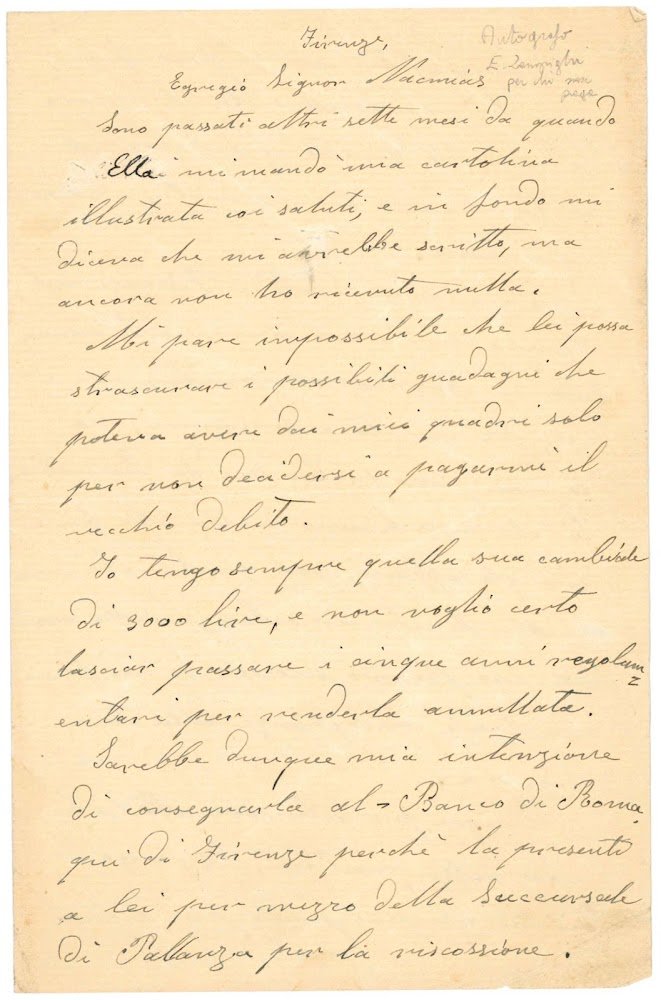 Firenze,
Autografo
E. Zampighi
per chi non
paga
Egregio Signor Nacmias
Sono passati altri sette mesi da quando
Ella mi mandò una cartolina
illustrata coi saluti, e in fondo mi
diceva che mi avrebbe scritto, ma
ancora non ho ricevuto nulla.
Mi pare impossibile che lei possa
strascurare i possibili guadagni che
poteva avere dai miei quadri solo
per non decidersi a pagarmi il
vecchio debito.
Io tengo sempre quella sua cambiale
di 3000 lire, e non voglio certo
lasciar passare i cinque anni regolam=
entari per renderla annullata.
Sarebbe dunque mia intenzione
di consegnarla al Banco di Roma
qui di Firenze perchè la presenti
a lei per mezzo della Succursale
di Pallanza per la riscossione.